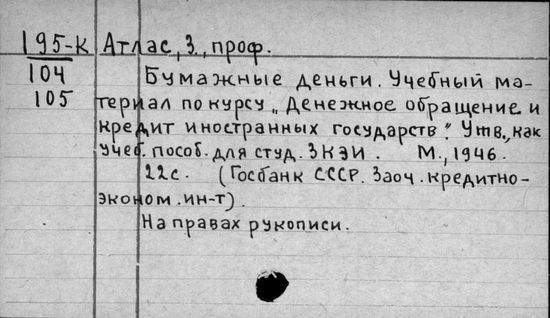 195-К Атлас, З., проф.
104 Бумажные деньги. Учебный ма-
105 териал по курсу „Денежное обращение и
кредит иностранных государств". Утв., как
учеб. пособ. для студ. ЗКЭИ. М., 1946.
22с. (Госбанк СССР. Заоч. кредитно-
эконом. ин-т).
На правах рукописи.